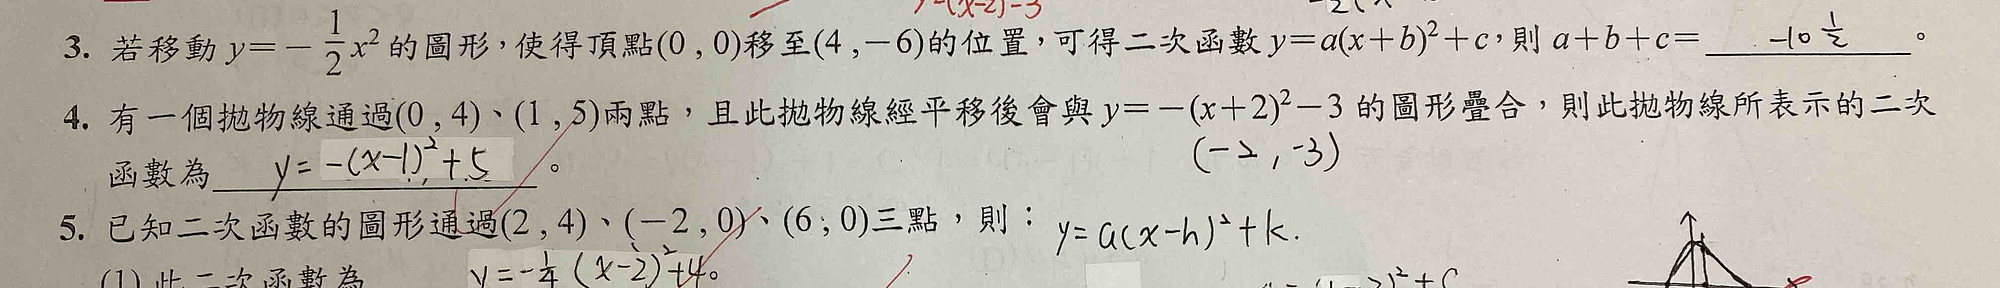 y=(x-2)-3
3. 若移動 y=－1/2x² 的圖形，使得頂點(0 , 0)移至(4 , －6)的位置，可得二次函數 y=a(x＋b)²＋c，則 a＋b＋c= -10 1/2 。
4. 有一個拋物線通過(0 , 4)、(1 , 5)兩點，且此拋物線經平移後會與 y=－(x＋2)²－3 的圖形疊合，則此拋物線所表示的二次
函數為 y=-(x-1)²+5 。 (-2 , -3)
5. 已知二次函數的圖形通過(2 , 4)、(－2 , 0)、(6 , 0)三點，則： y=a(x-h)²+k.
(1) 此二次函數為 y=-1/4 (x-2)²+4。